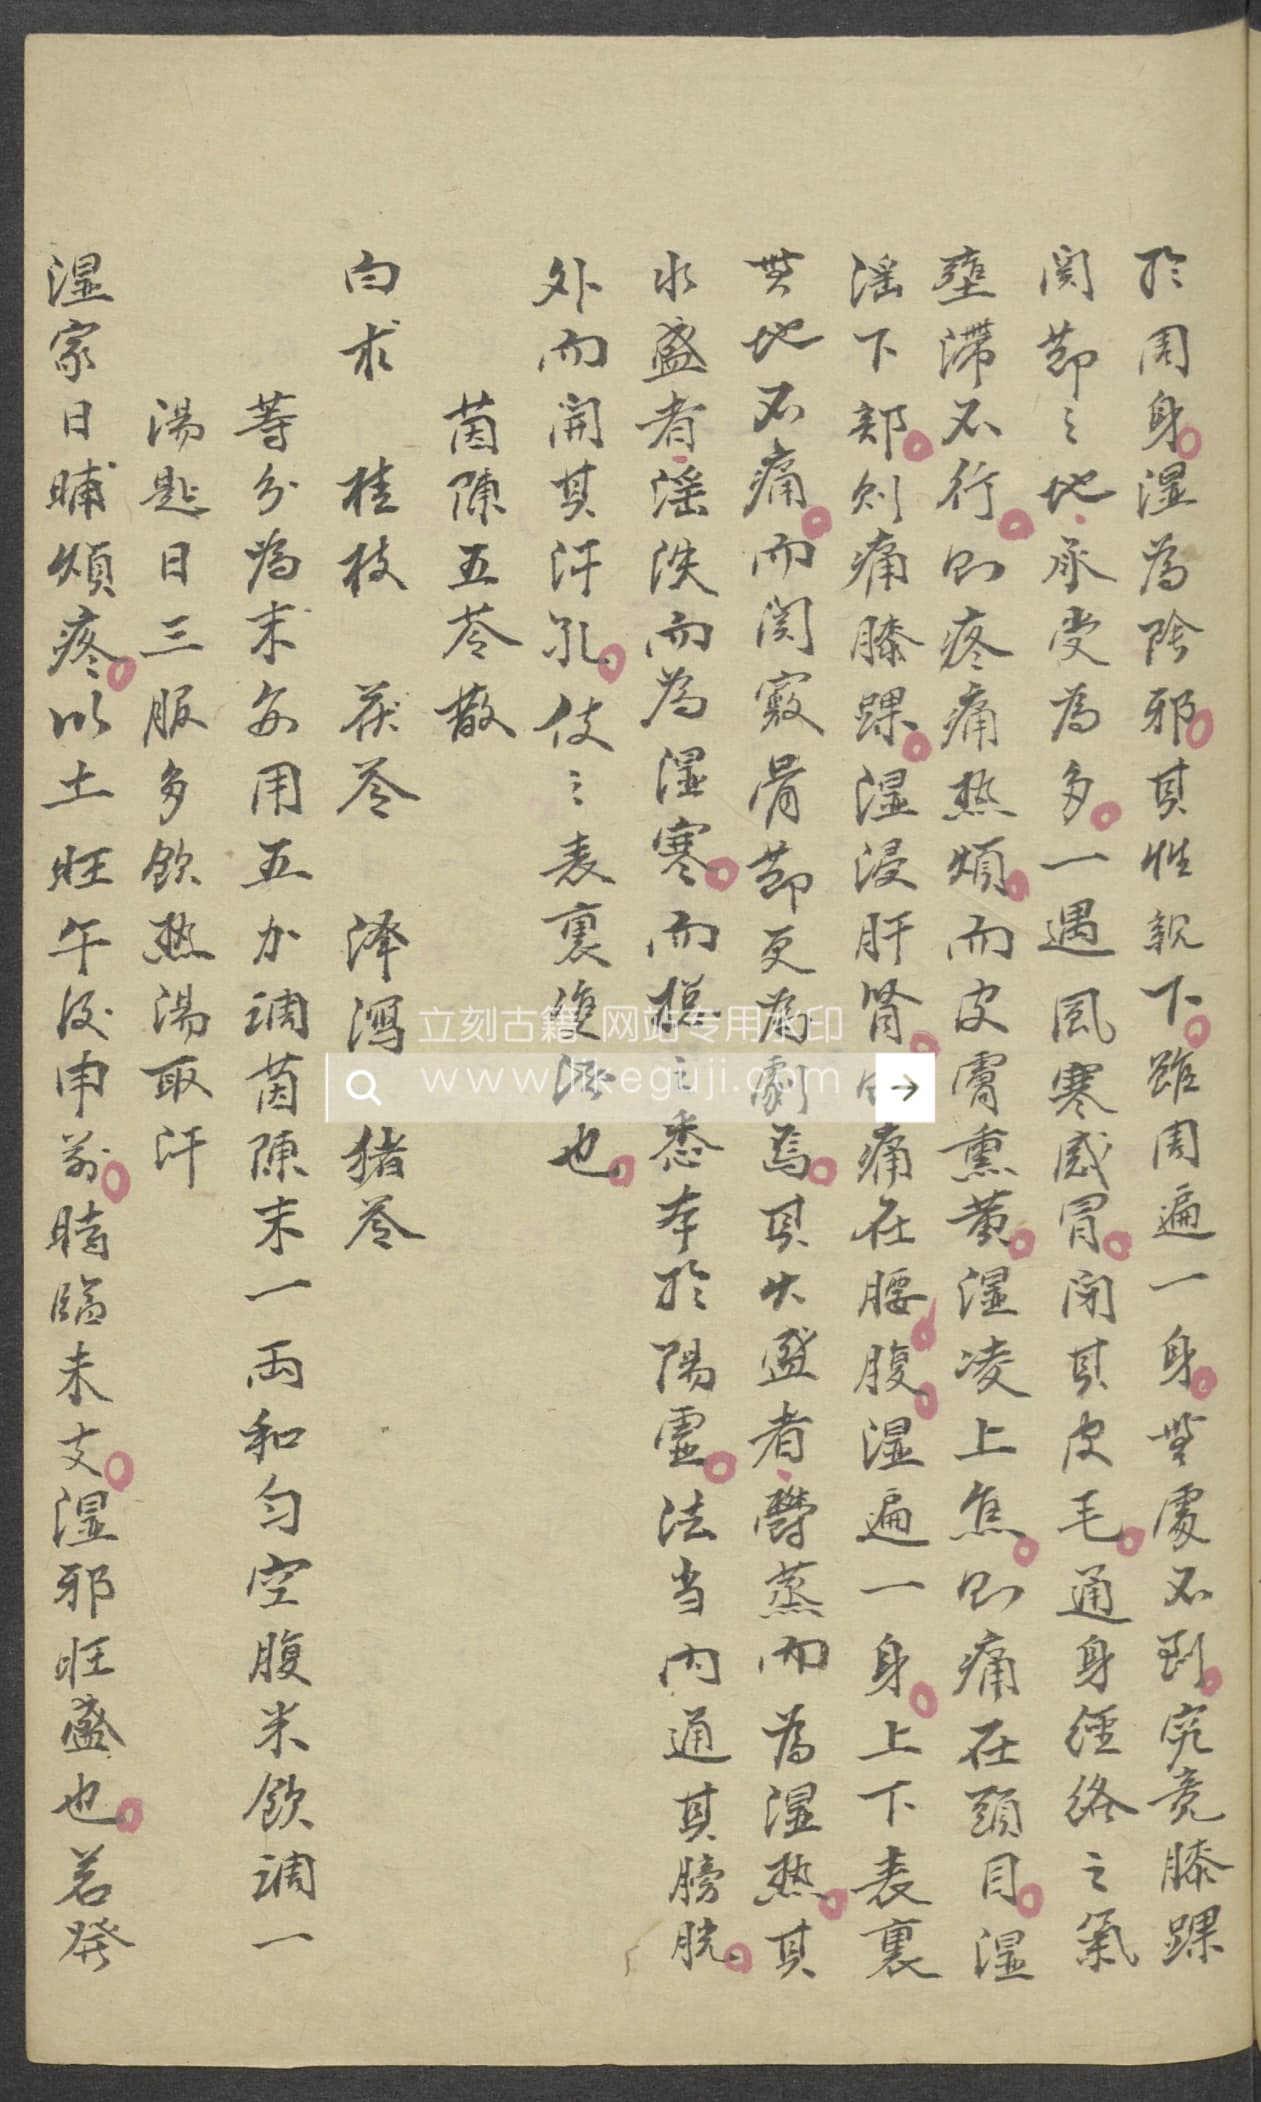 於周身湿為陰邪其性親下雖周遍一身無處不到究竟膝踝
関節之地承受為多一遇風寒感冒閉其皮毛通身經絡之氣
壅滞不行則疼痛热煩而皮膚熏黄湿凌上焦則痛在頭目湿
滛下部則痛膝踝湿浸肝腎痛在腰腹湿遍一身上下表裏
無地不痛而関竅骨節更為劇焉其火盛者欝蒸而為湿热其
水盛者滛泆而為湿寒而揔之悉本於陽虚法当内通其膀胱
外而開其汗孔使之表裏雙泄也
茵陳五苓散
白术 桂枝 茯苓 泽瀉 猪苓
等分為末每用五分調茵陳末一両和匀空腹米飲調一
湯匙日三服多飲热湯取汗
湿家日晡煩疼以土旺午後申前時臨未支湿邪旺盛也若發
立刻古籍 网站专用水印
www.likeguji.com